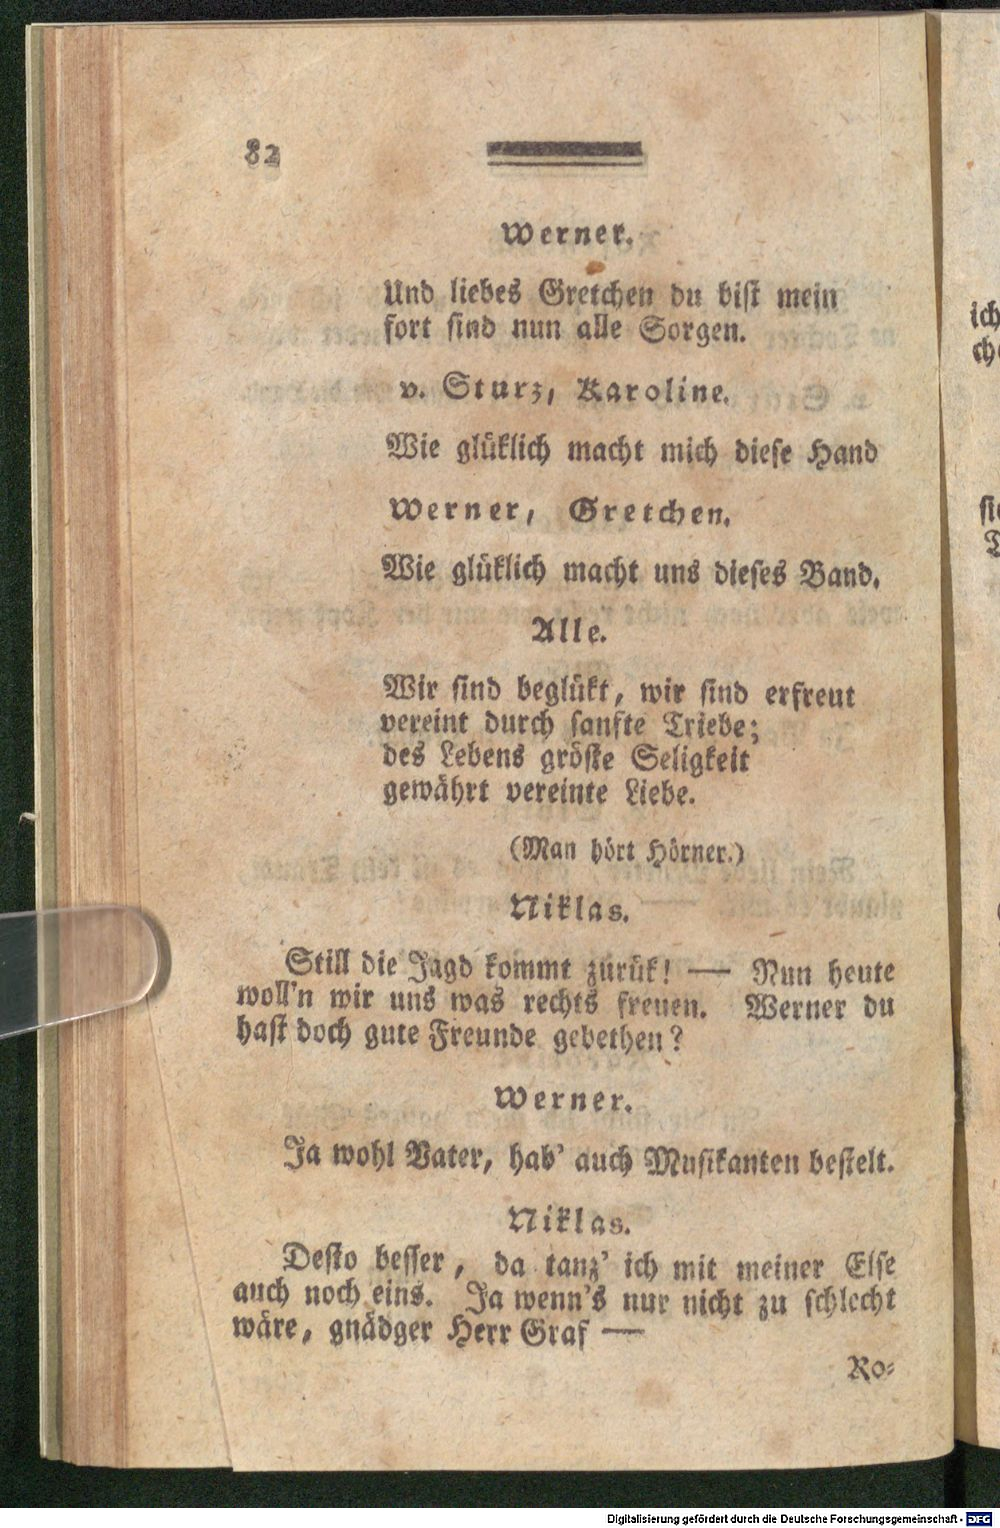 82
Werner.
Und liebes Gretchen du bist mein
fort sind nun alle Sorgen.
v. Sturz, Karoline.
Wie glüklich macht mich diese Hand
Werner, Gretchen.
Wie glüklich macht uns dieses Band.
Alle.
Wir sind beglükt, wir sind erfreut
vereint durch sanfte Triebe;
des Lebens gröste Seligkeit
gewährt vereinte Liebe.
(Man hört Hörner.)
Niklas.
Still die Jagd kommt zurük! — Nun heute
woll'n wir uns was rechts freuen. Werner du
hast doch gute Freunde gebethen?
Werner.
Ja wohl Vater, hab' auch Musikanten bestelt.
Niklas.
Desto besser, da tanz' ich mit meiner Else
auch noch eins. Ja wenn's nur nicht zu schlecht
wäre, gnädger Herr Graf —
Ro-
ich
che
sie
Digitalisierung gefördert durch die Deutsche Forschungsgemeinschaft - DFG